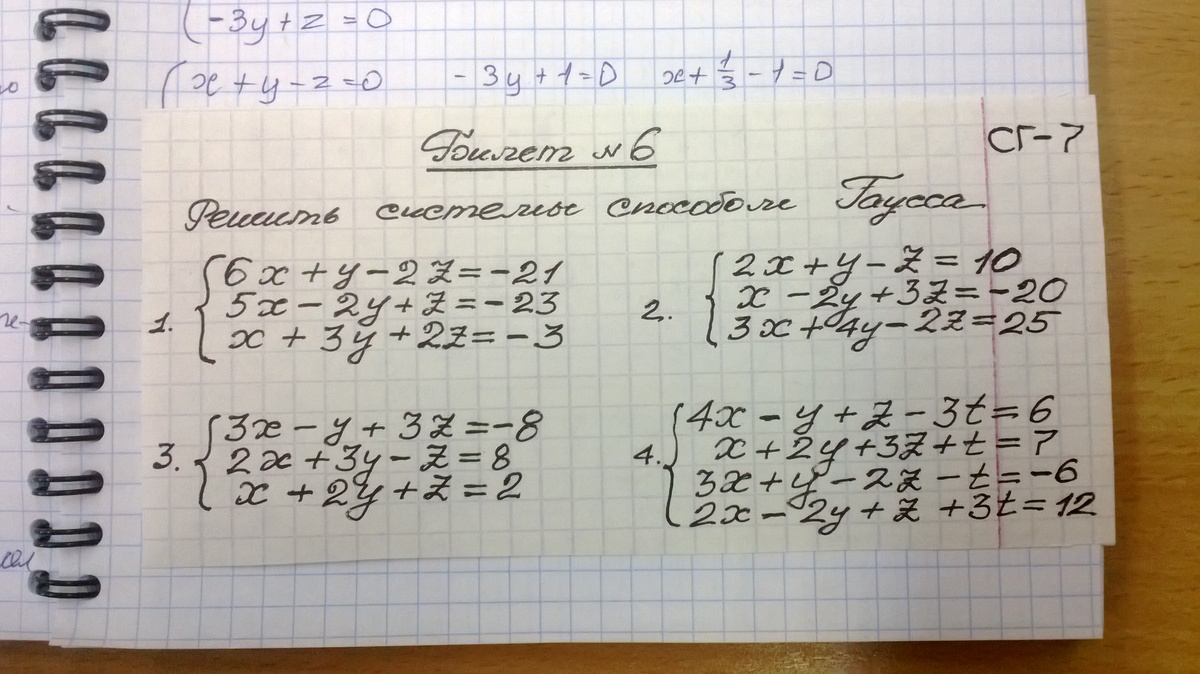 -3y+z=0
x+y-z=0 -3y+1=0 x+1/3-1=0
Билет №6 СГ-7
Решить системы способом Гаусса
1. 6x+y-2z=-21
5x-2y+z=-23
x+3y+2z=-3
2. 2x+y-z=10
x-2y+3z=-20
3x+4y-2z=25
3. 3x-y+3z=-8
2x+3y-z=8
x+2y+z=2
4. 4x-y+z-3t=6
x+2y+3z+t=7
3x+y-2z-t=-6
2x-2y+z+3t=12